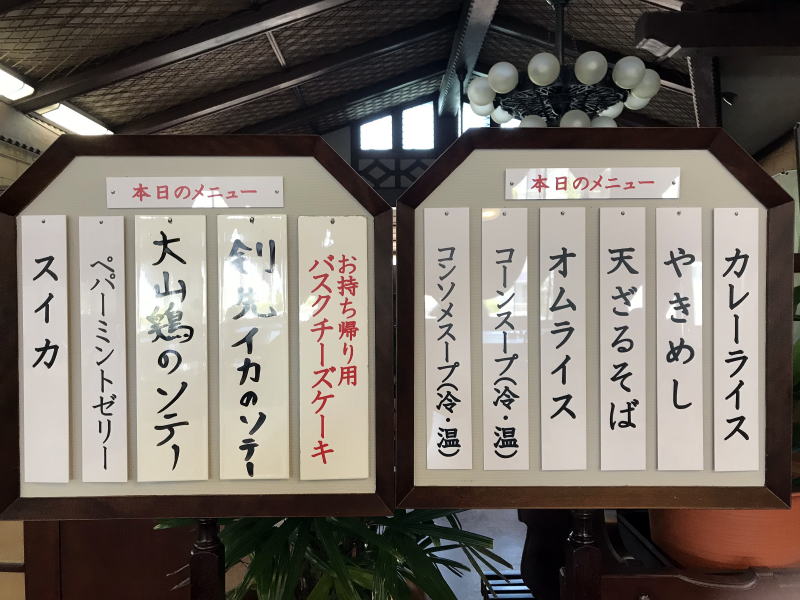 本日のメニュー
カレーライス
やきめし
天ざるそば
オムライス
コーンスープ(冷・温)
コンソメスープ(冷・温)
本日のメニュー
お持ち帰り用
バスクチーズケーキ
剣先イカのソテー
大山鶏のソテー
ペパーミントゼリー
スイカ